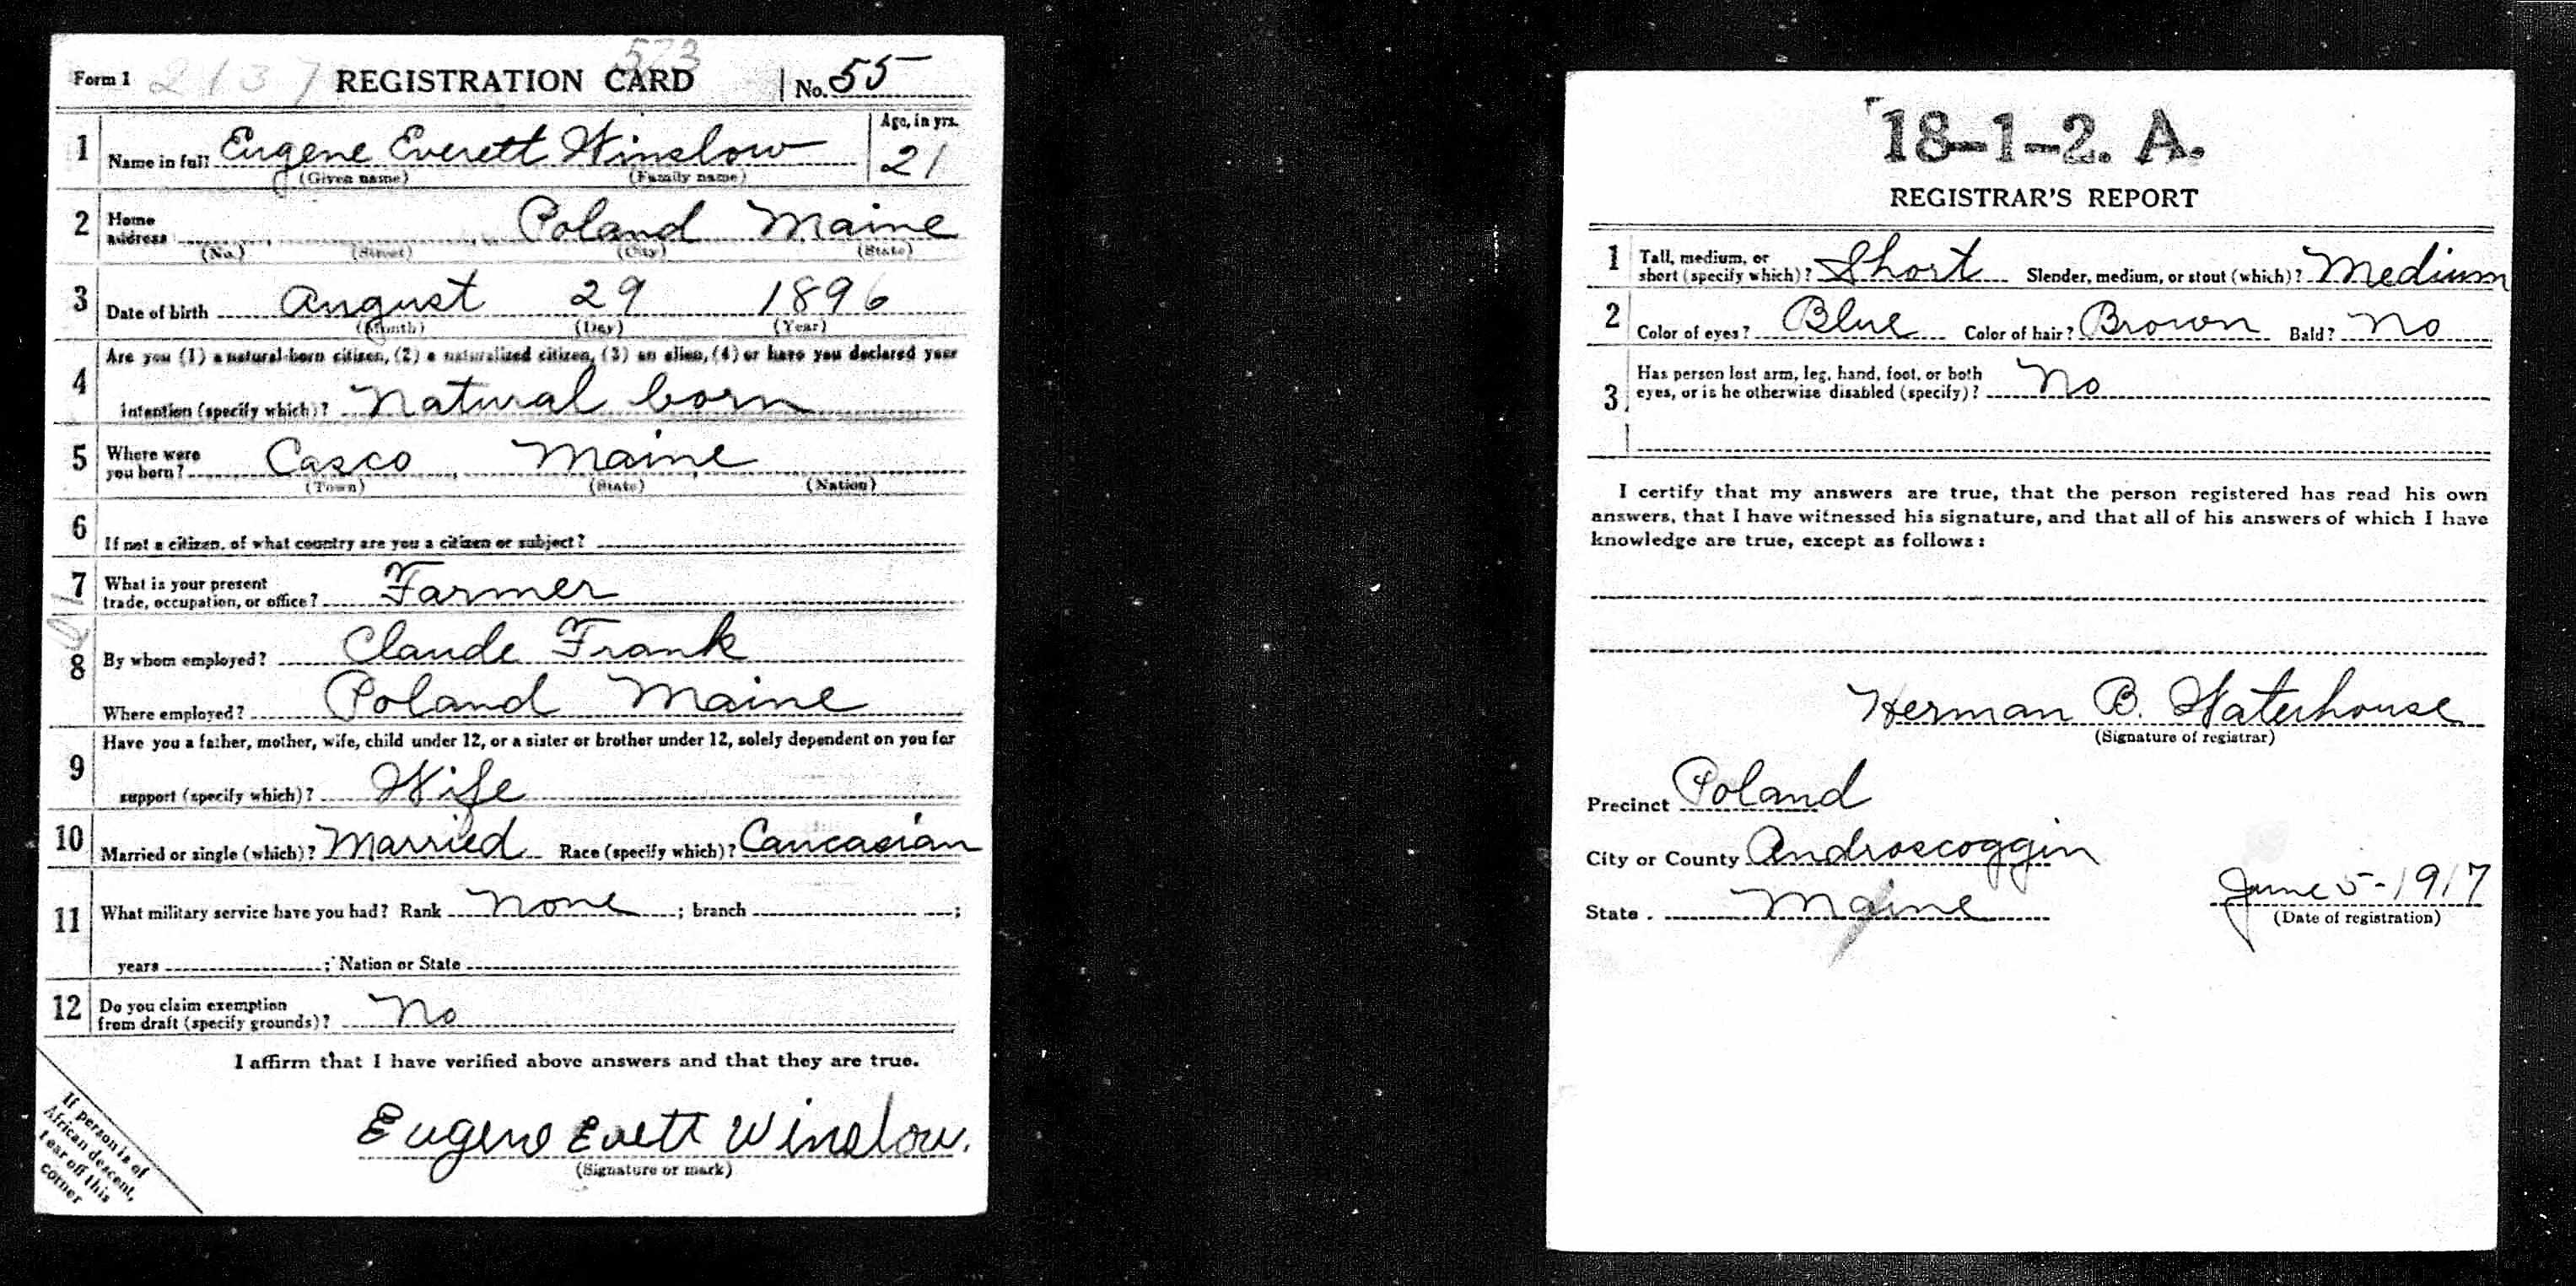 Form 1 2137 REGISTRATION CARD 523 No. 55
1 Name in full Eugene Everett Winslow Age, in yrs. 21
(Given name) (Family name)
2 Home address Poland Maine
(No.) (Street) (City) (State)
3 Date of birth August 29 1896
(Month) (Day) (Year)
4 Are you (1) a natural-born citizen, (2) a naturalized citizen, (3) an alien, (4) or have you declared your
intention (specify which)? Natural born
5 Where were you born? Casco, Maine
(Town) (State) (Nation)
6 If not a citizen, of what country are you a citizen or subject?
7 What is your present trade, occupation, or office? Farmer
8 By whom employed? Claude Frank
Where employed? Poland Maine
9 Have you a father, mother, wife, child under 12, or a sister or brother under 12, solely dependent on you for
support (specify which)? Wife
10 Married or single (which)? Married Race (specify which)? Caucasian
11 What military service have you had? Rank None ; branch ;
years ; Nation or State
12 Do you claim exemption from draft (specify grounds)? No
I affirm that I have verified above answers and that they are true.
Eugene Evett Winslow.
(Signature or mark)
If person is of
African descent,
tear off this
corner
18-1-2. A.
REGISTRAR'S REPORT
1 Tall, medium, or short (specify which)? Short Slender, medium, or stout (which)? Medium
2 Color of eyes? Blue Color of hair? Brown Bald? No
3 Has person lost arm, leg, hand, foot, or both
eyes, or is he otherwise disabled (specify)? No
I certify that my answers are true, that the person registered has read his own
answers, that I have witnessed his signature, and that all of his answers of which I have
knowledge are true, except as follows:
Herman B. Waterhouse
(Signature of registrar)
Precinct Poland
City or County Androscoggin
State. Maine June 5-1917
(Date of registration)